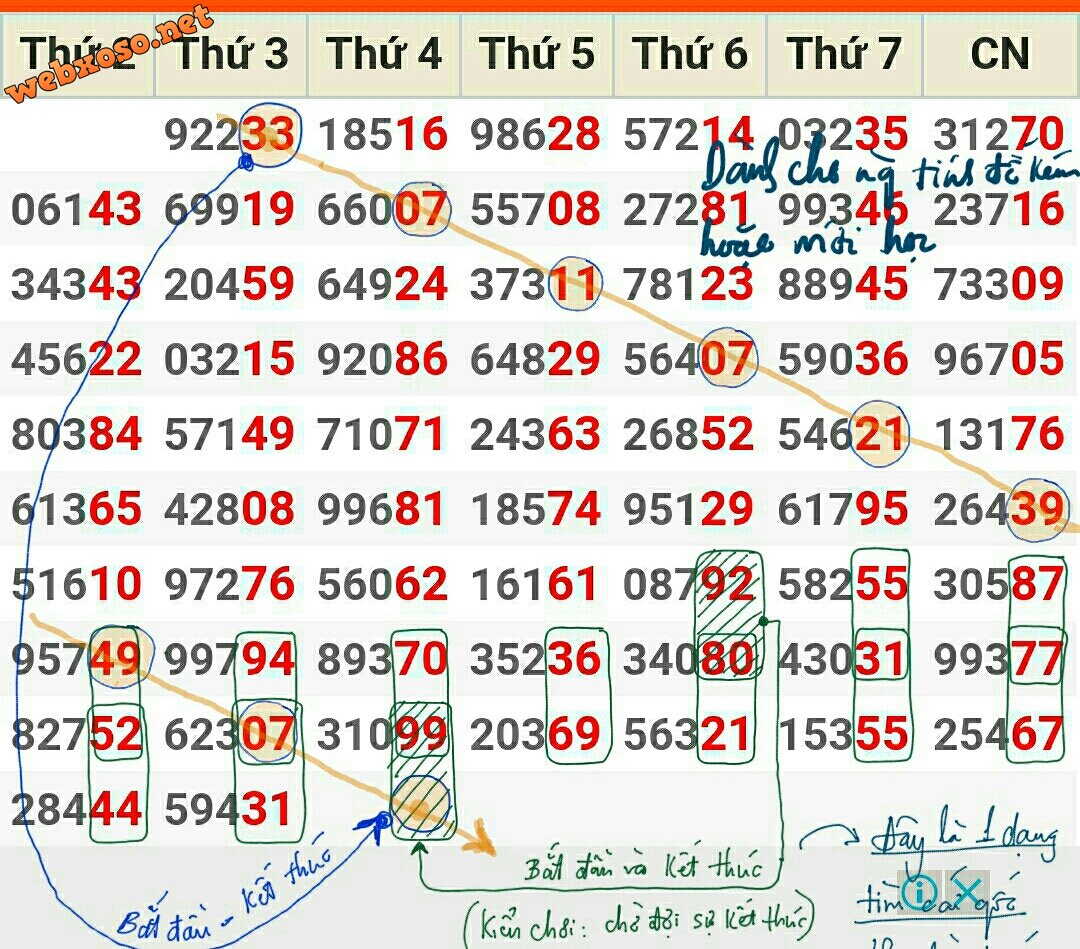 webxoso.net
Thứ 2 Thứ 3 Thứ 4 Thứ 5 Thứ 6 Thứ 7 CN
92233 18516 98628 57214 03235 31270
Dành cho ng tính đề kém
06143 69919 66007 55708 27281 99346 23716
hoặc mới học
34343 20459 64924 37311 78123 88945 73309
45622 03215 92086 64829 56407 59036 96705
80384 57149 71071 24363 26852 54621 13176
61365 42808 99681 18574 95129 61795 26439
51610 97276 56062 16161 08792 58255 30587
95749 99794 89370 35236 34080 43031 99377
82752 62307 31099 20369 56321 15355 25467
28444 59431
Đây là 1 dạng
Bắt đầu và kết thúc
tìm gốc
Bắt đầu - kết thúc
(Kiểu chơi: chờ đợi sự kết thúc)